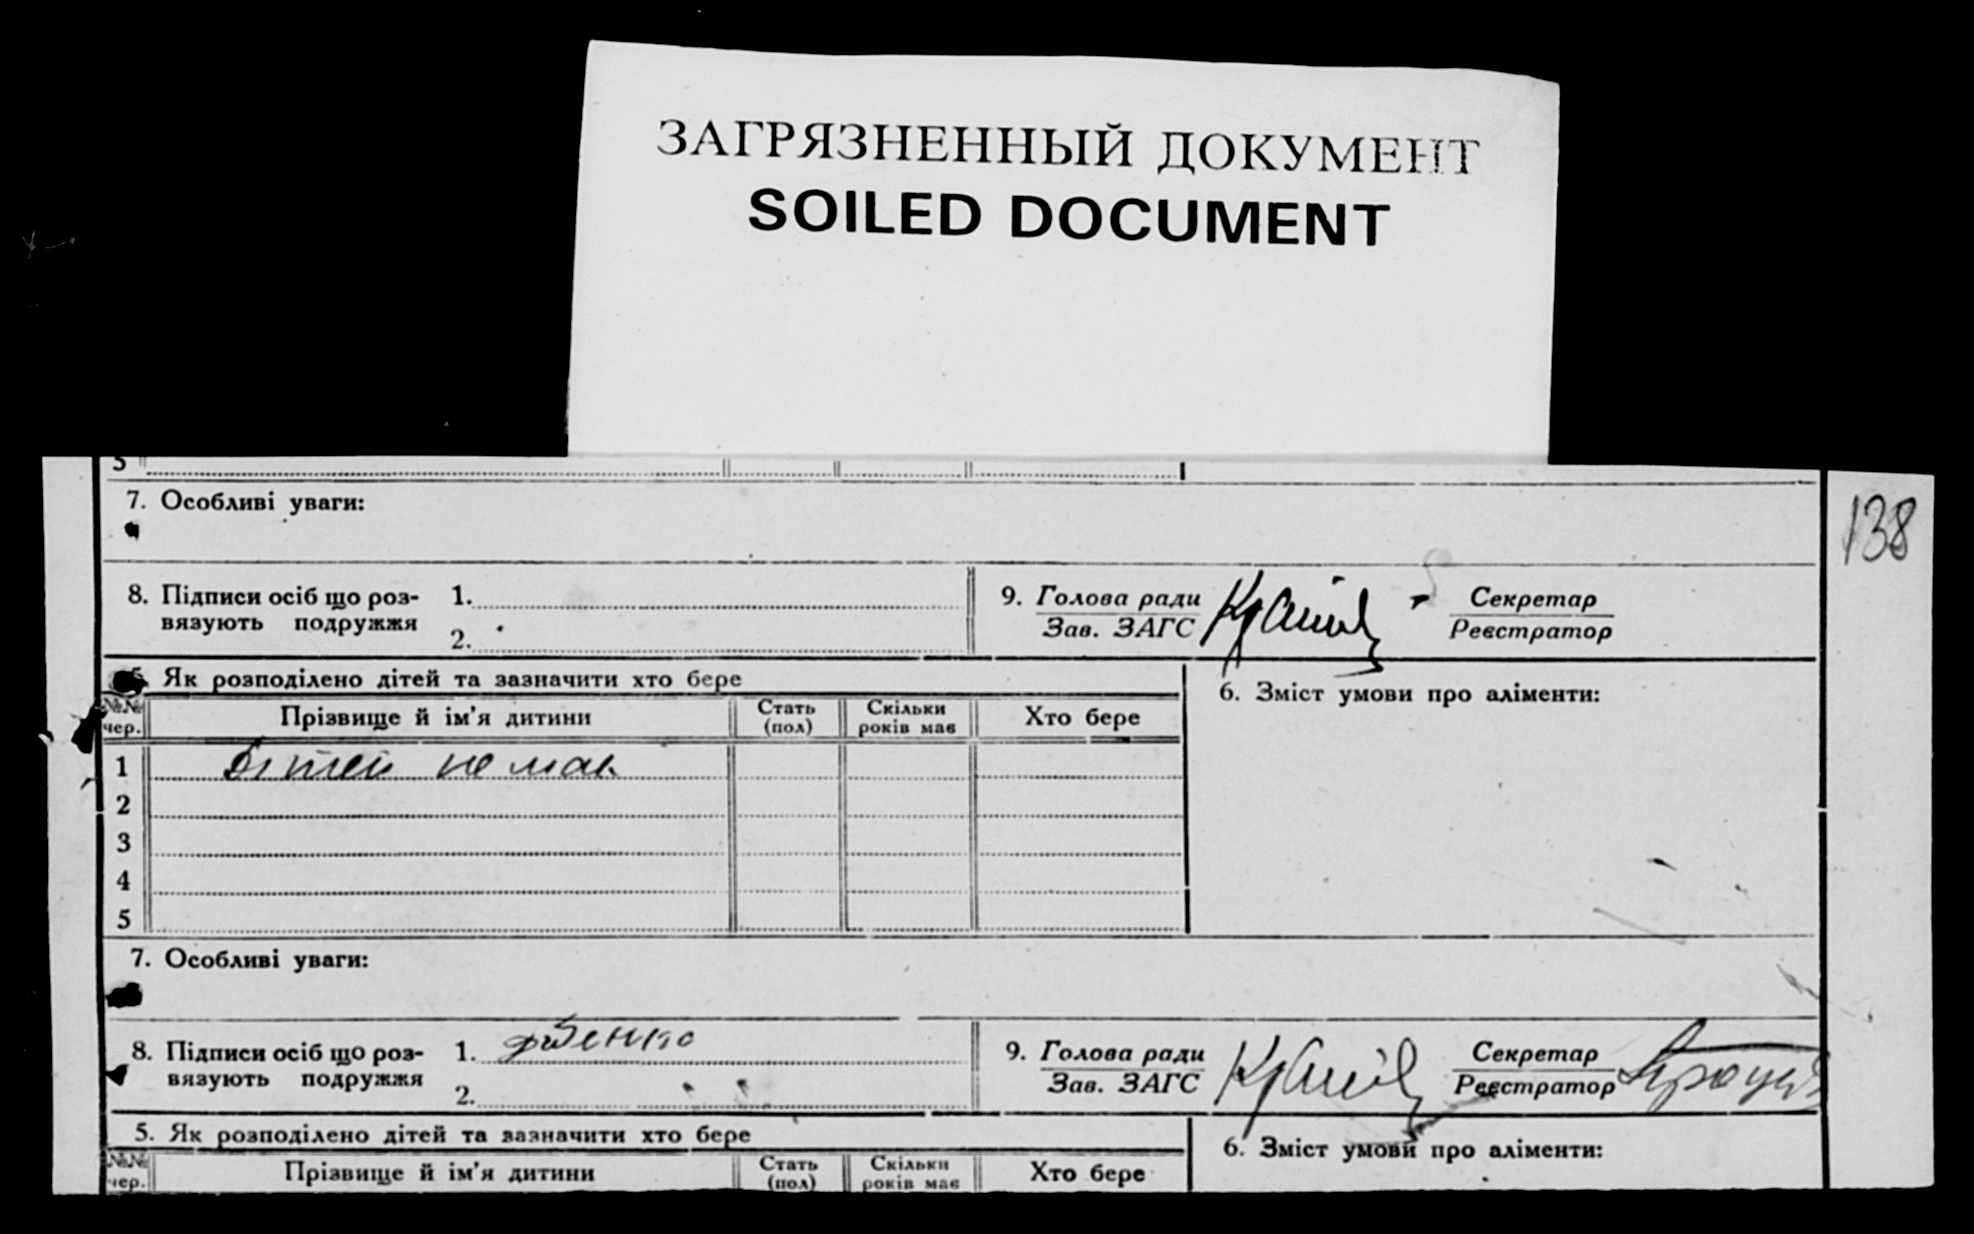 ЗАГРЯЗНЕННЫЙ ДОКУМЕНТ
SOILED DOCUMENT
5
7. Особливі уваги:
138
8. Підписи осіб що роз-
вязують подружжя
1.
2.
9. Голова ради
Зав. ЗАГС
Секретар
Реєстратор
5. Як розподілено дітей та зазначити хто бере
6. Зміст умови про аліменти:
№№ чер.
Прізвище й ім'я дитини
Стать (пол)
Скільки років має
Хто бере
1 Дітей немає
2
3
4
5
7. Особливі уваги:
8. Підписи осіб що роз-
вязують подружжя
1.
2.
9. Голова ради
Зав. ЗАГС
Секретар
Реєстратор
5. Як розподілено дітей та зазначити хто бере
6. Зміст умови про аліменти:
№№ чер.
Прізвище й ім'я дитини
Стать (пол)
Скільки років має
Хто бере